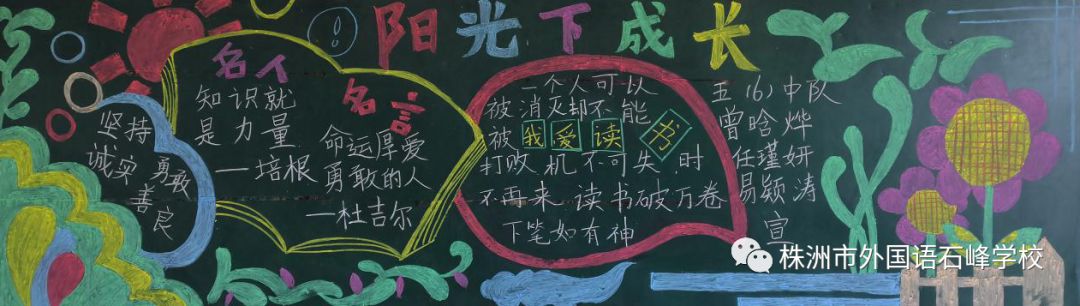 阳光下成长
坚持
诚实 勇敢
善良
名人
名言
知识就
是力量
——培根
命运厚爱
勇敢的人
——杜吉尔
一个人可以
被消灭却不能
被我爱读书
打败机不可失,时
不再来读书破万卷
下笔如有神
五(6)中队
曾晗烨
任瑾妍
易颖涛
宣
株洲市外国语石峰学校